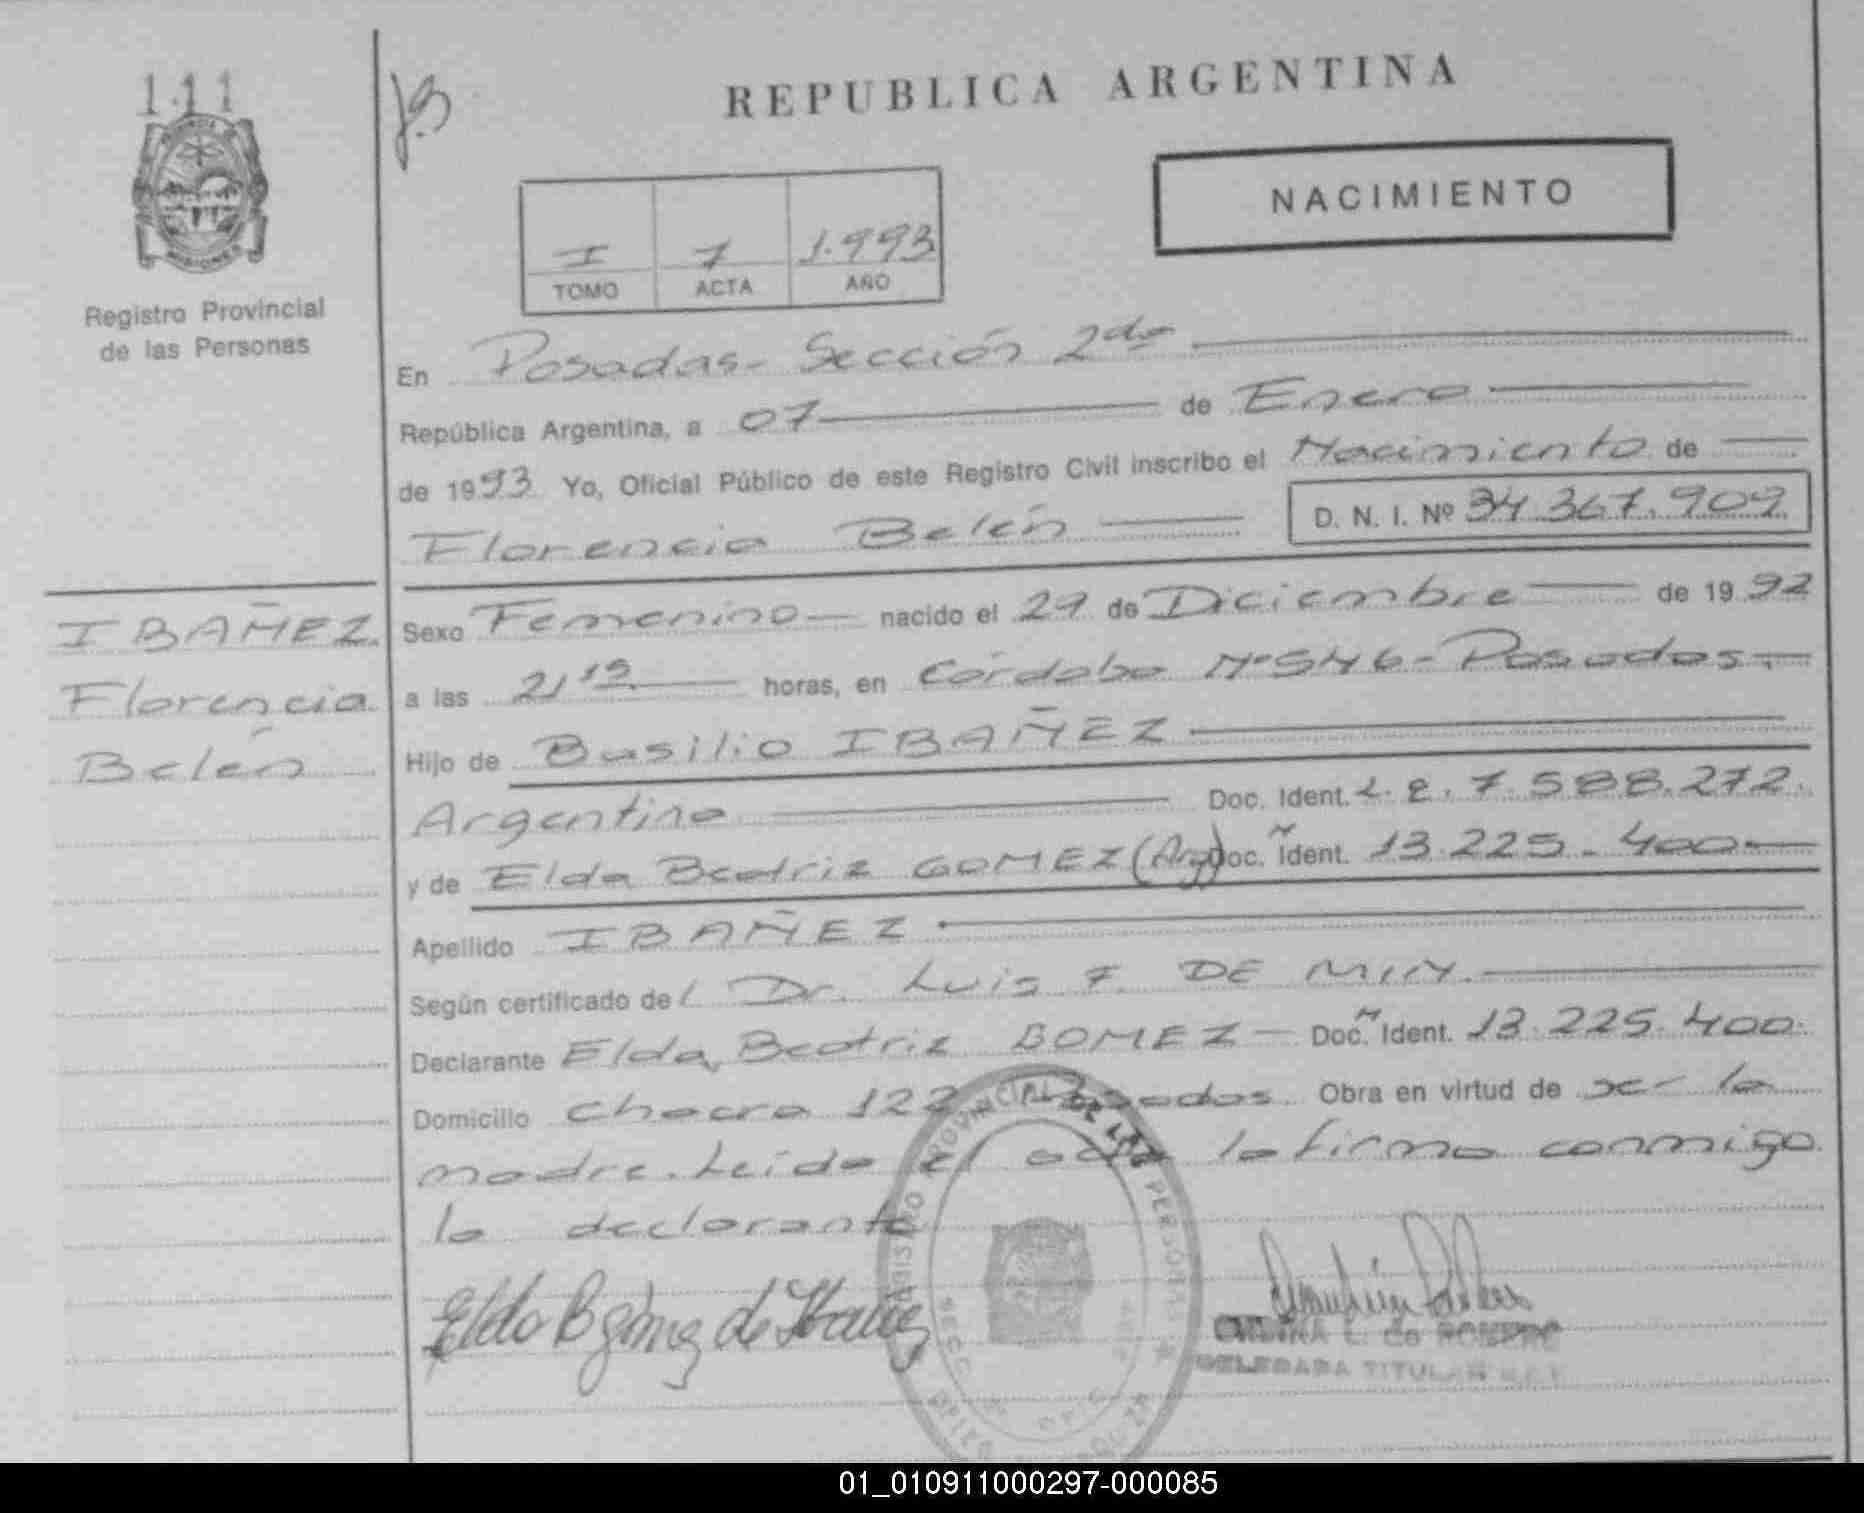 111
REPUBLICA ARGENTINA
NACIMIENTO
I 7 1.993
TOMO ACTA AÑO
Registro Provincial
de las Personas
En Posadas- Sección 2da
República Argentina, a 07 de Enero
de 1993 Yo, Oficial Público de este Registro Civil inscribo el Nacimiento de
Florencia Belén D. N. I. Nº 34.367.909
IBAÑEZ
Florencia
Belén
Sexo Femenino nacido el 29 de Diciembre de 1992
a las 21 19 horas, en Córdoba Nº 546 - Posadas.-
Hijo de Basilio IBAÑEZ
Argentino Doc. Ident. L.E. 7.588.272.
y de Elda Beatriz GOMEZ (Arg) Doc. Ident. 13.225.400
Apellido IBAÑEZ
Según certificado del Dr. Luis F. DE MIN.
Declarante Elda Beatriz GOMEZ - Doc. Ident. 13.225.400.
Domicilio Chacra 122 Posadas. Obra en virtud de ser la
madre. Leída el acta la firma conmigo
la declarante
Elda B Gómez de Ibañez
REGISTRO PROVINCIAL DE LAS PERSONAS
L. de ROMERO
DELEGADA TITULAR
01_010911000297-000085